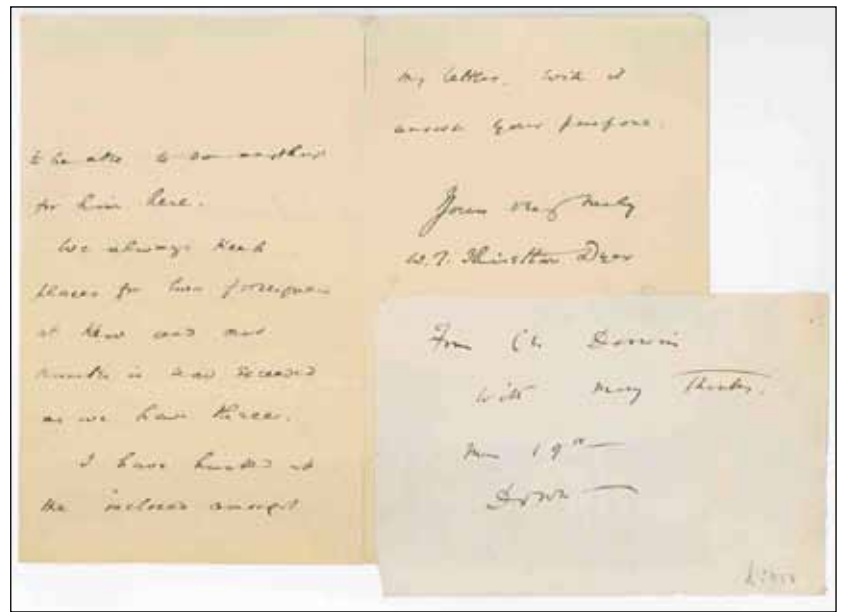 to be able to do
for him here.
We always keep
places for two foreigners
at Kew and our
number is now exceeded
as we have three.
I have hunted
the inclosed amongst
my letters. Will it
answer your purpose.
Yours very truly
W. T. Thiselton Dyer
From Ch. Darwin
with many thanks.
19th
Down